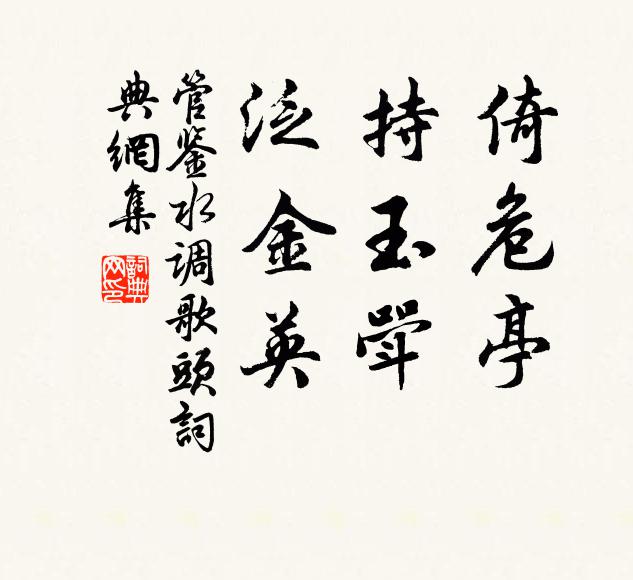 倚危亭
持玉斝
泛金英
管鉴水调歌頭詞
典網集
詞典
网印